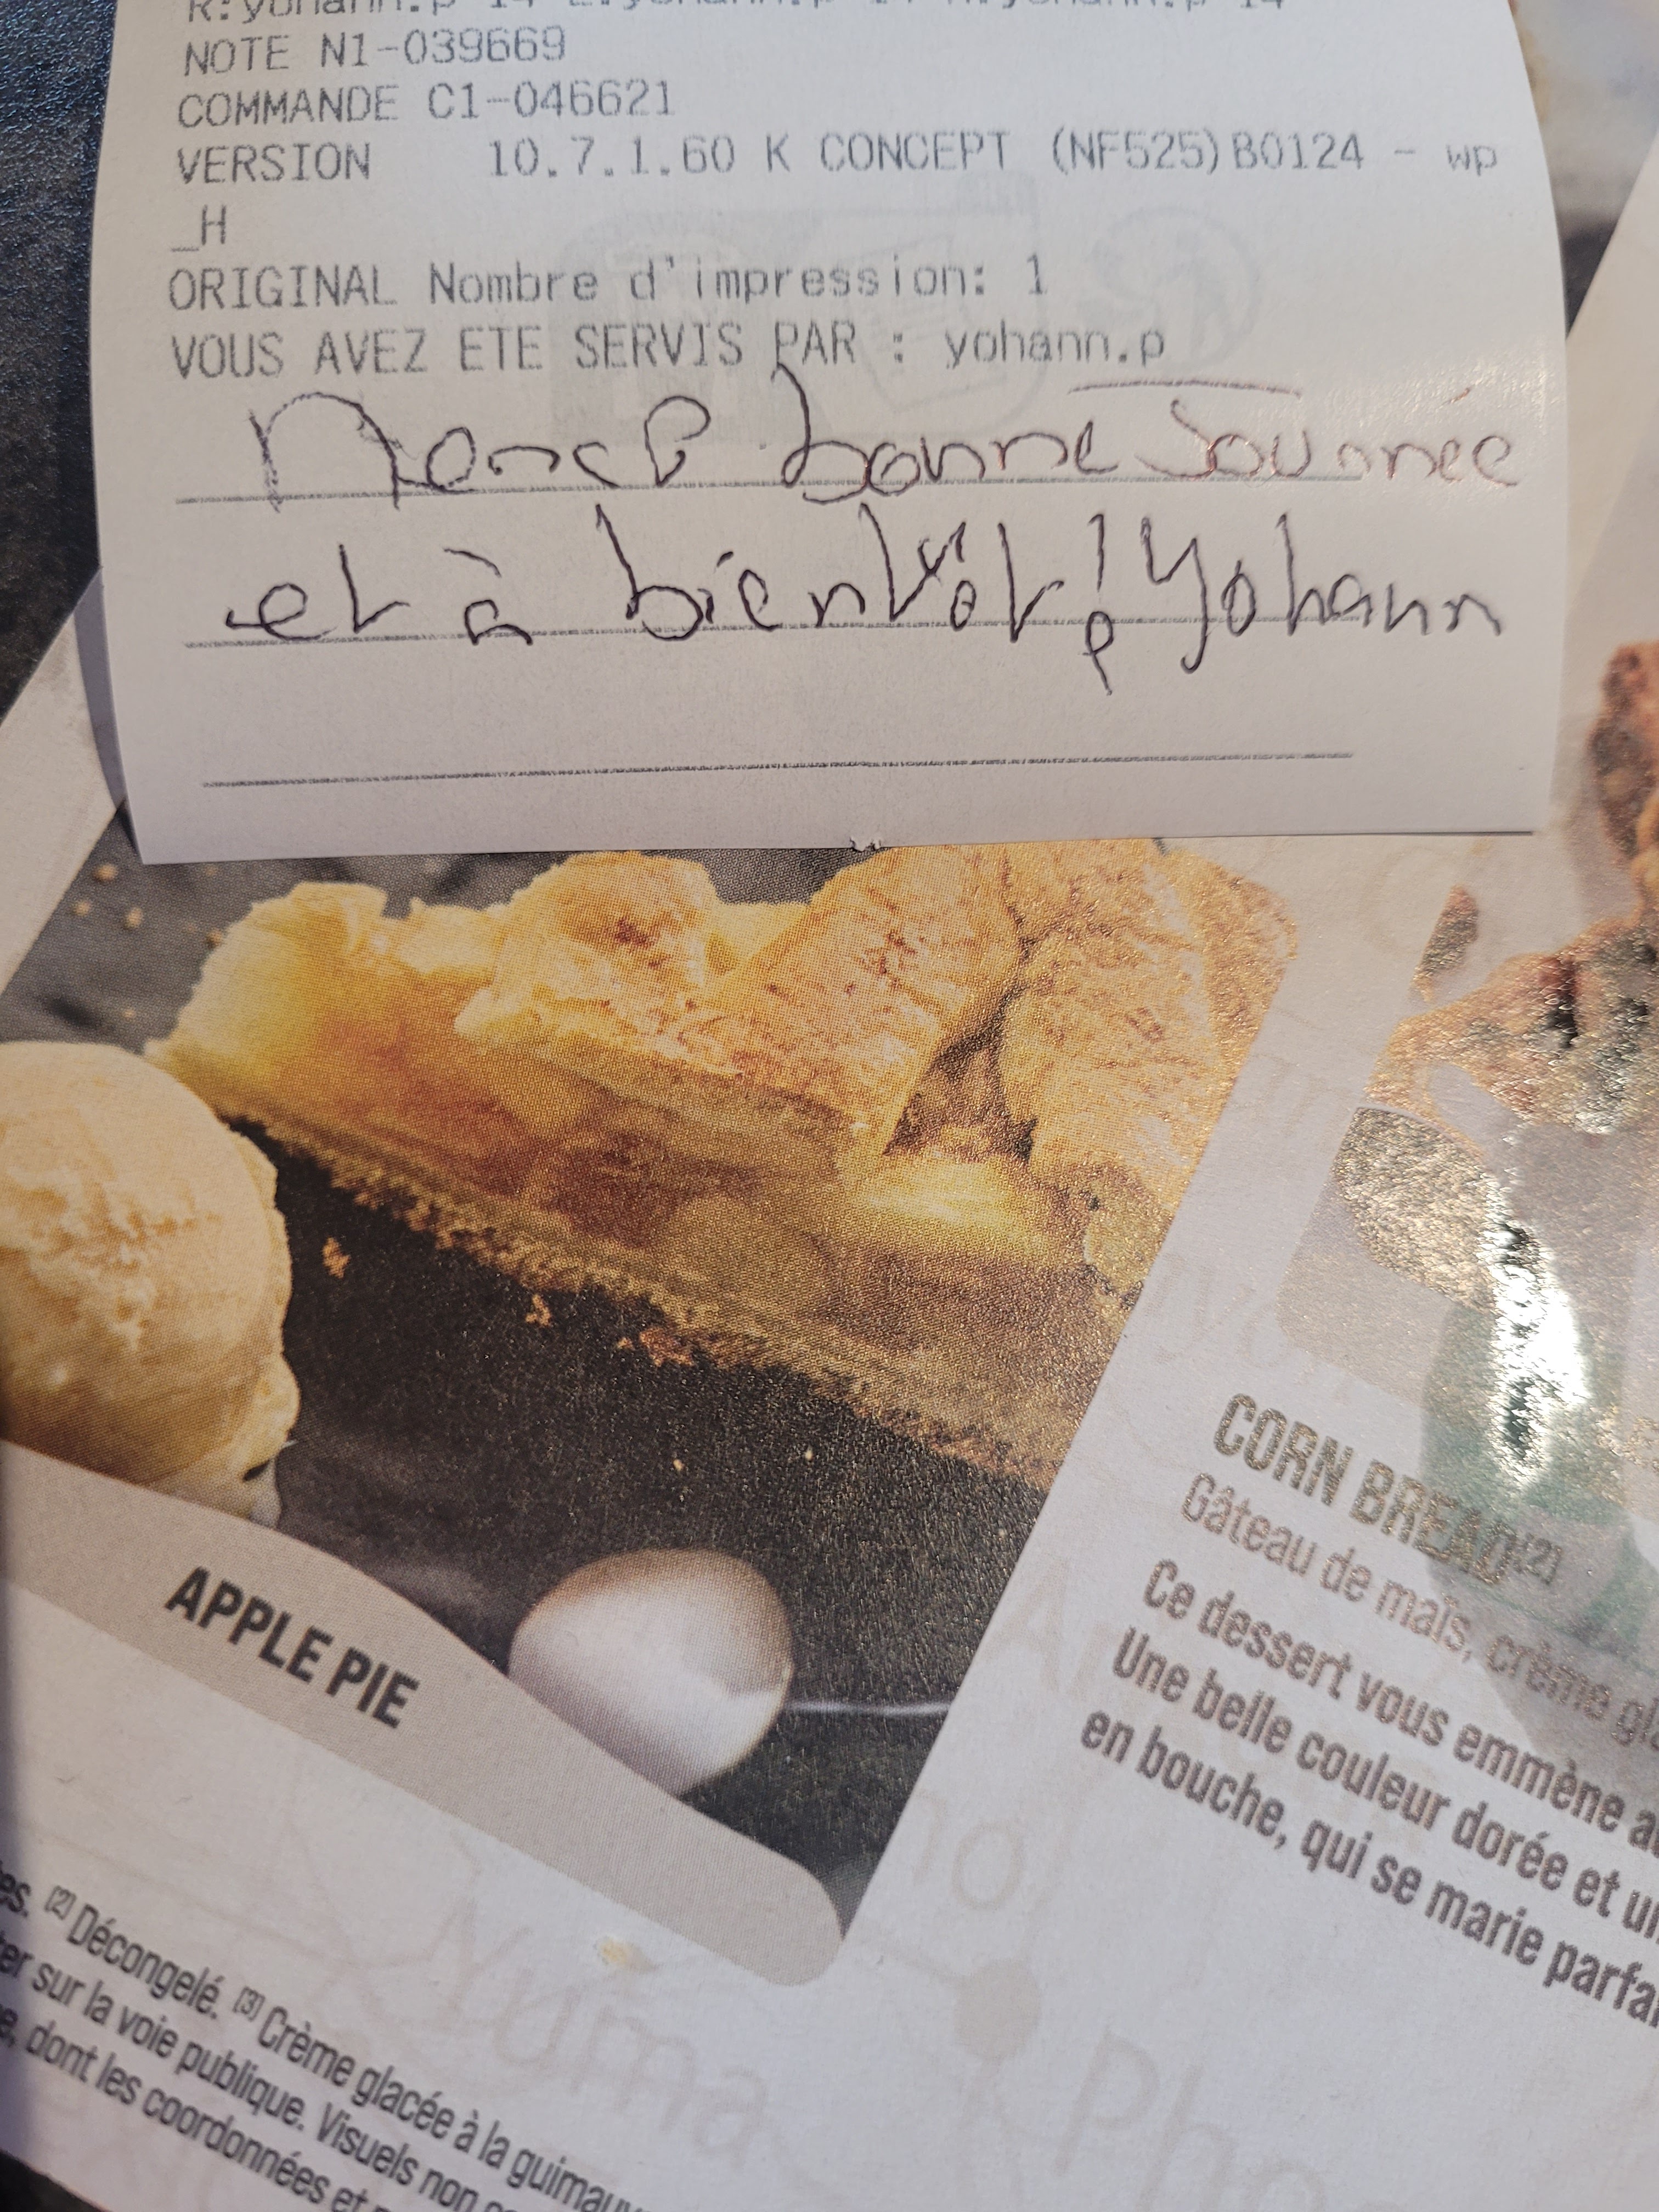 NOTE N1-039669
COMMANDE C1-046621
VERSION 10.7.1.60 K CONCEPT (NF525)B0124 - wp
_H
ORIGINAL Nombre d'impression: 1
VOUS AVEZ ETE SERVIS PAR : yohann.p
Merci bonne Journée
et à bientôt ! Yohann
APPLE PIE
CORN BREAD(2)
Gâteau de maïs, crème
Ce dessert vous emmène
Une belle couleur dorée et
en bouche, qui se marie
(2) Décongelé. (3) Crème glacée à la
sur la voie publique. Visuels non
dont les coordonnées et
Yuma